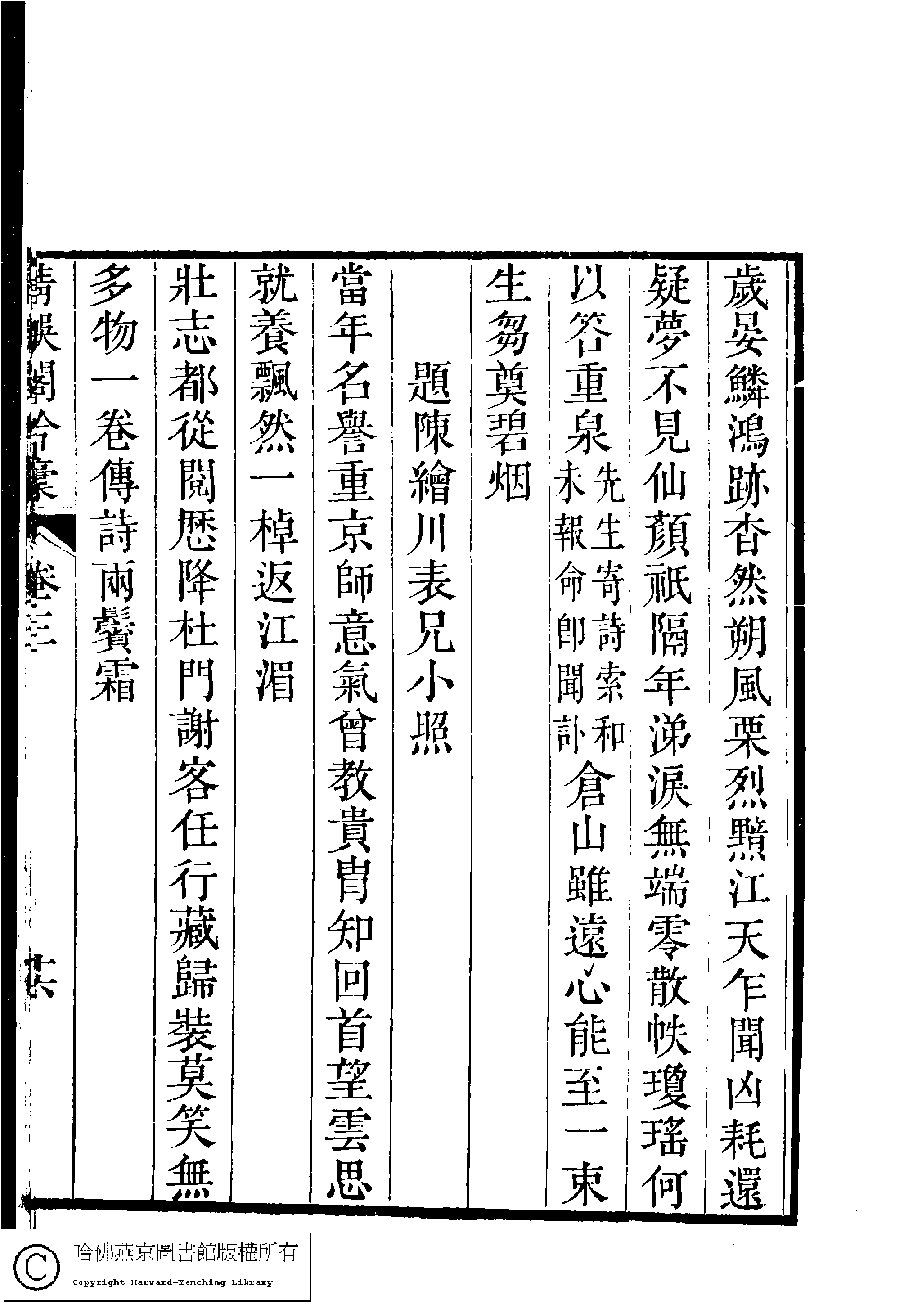 歲晏鱗鴻跡杳然朔風栗烈黯江天乍聞凶耗還
疑夢不見仙顏祇隔年涕淚無端零散帙瓊瑤何
以答重泉先生寄詩索和未報命卽聞訃倉山雖遠心能至一束
生芻奠碧烟
題陳繪川表兄小照
當年名譽重京師意氣曾教貴胄知回首望雲思
就養飄然一棹返江湄
壯志都從閱歷降杜門謝客任行藏歸裝莫笑無
多物一卷傳詩兩鬢霜
清娛閣吟稾 卷三 十六
哈佛燕京圖書館版權所有
Copyright Harvard-Yenching Library